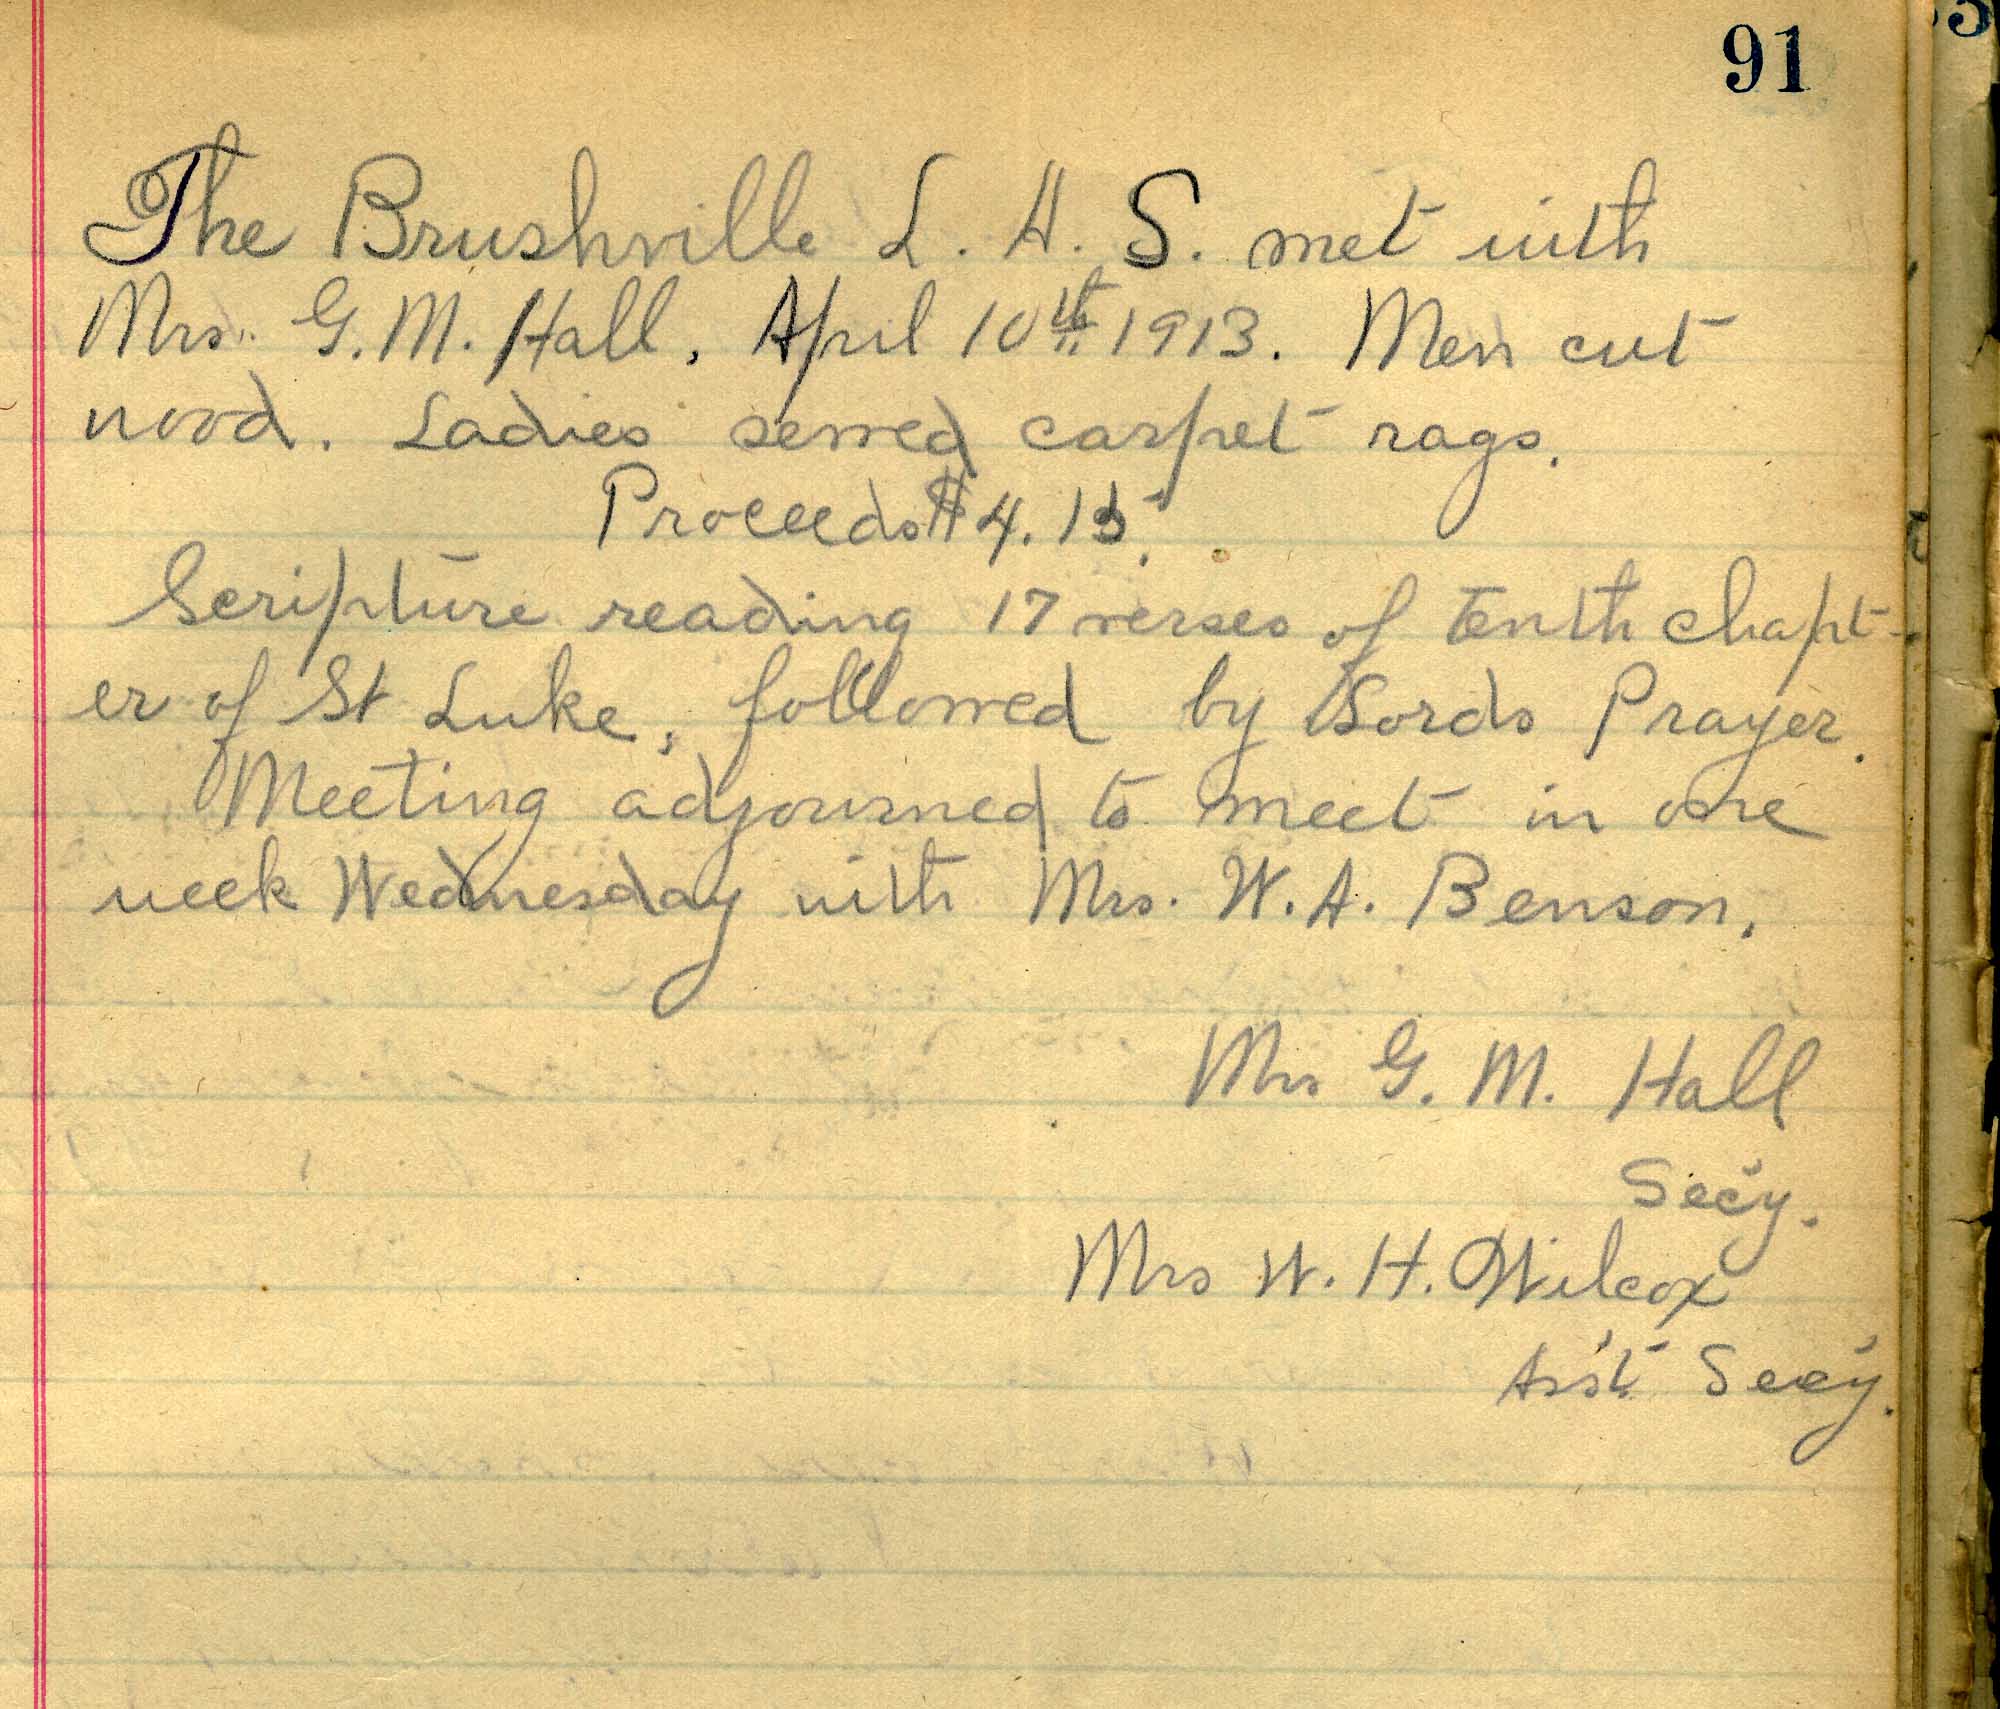 91
The Brushville L. A. S. met with
Mrs. G. M. Hall, April 10th 1913. Men cut
wood. Ladies sewed carpet rags.
Proceeds $4.15.
Scripture reading 17 verses of tenth chapt-
er of St Luke, followed by Lords Prayer.
Meeting adjourned to meet in one
week Wednesday with Mrs. W. A. Benson.
Mrs G. M. Hall
Sec'y.
Mrs W. H. Wilcox
Ass't Sec'y.